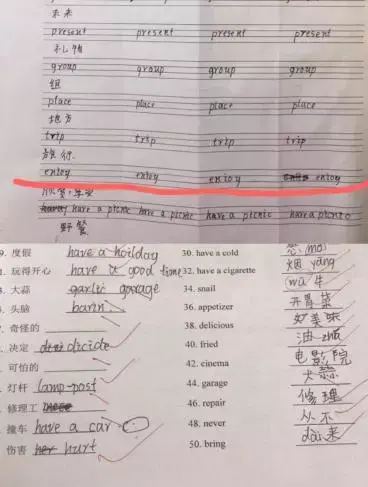 未来
present present present present
礼物
group group group group
组
place place place place
地方
trip trip trip trip
旅行
enioy enioy enioy enioy
have a picnic have a picnic have a picnic have a picnic
野餐
9. 度假 have a hoilday
玩得开心 have a good time
大蒜 garlic
头脑
奇怪的
决定 dicide
可怕的
灯杆 lamp-post
修理工
撞车 have a car
伤害 hurt
30. have a cold
32. have a cigarette 烟 yāng
34. snail wū 牛
36. appetizer 开胃菜
38. delicious 好美味
40. fried 油 zhá
42. cinema 电影院
44. garage 大蒜
46. repair 修理
48. never 从不
50. bring dài 来